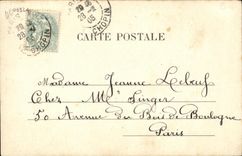 CARTE POSTALE
Madame Jeanne Lebœuf
Chez Mr Singer
50 Avenue du Bois de Boulogne
Paris